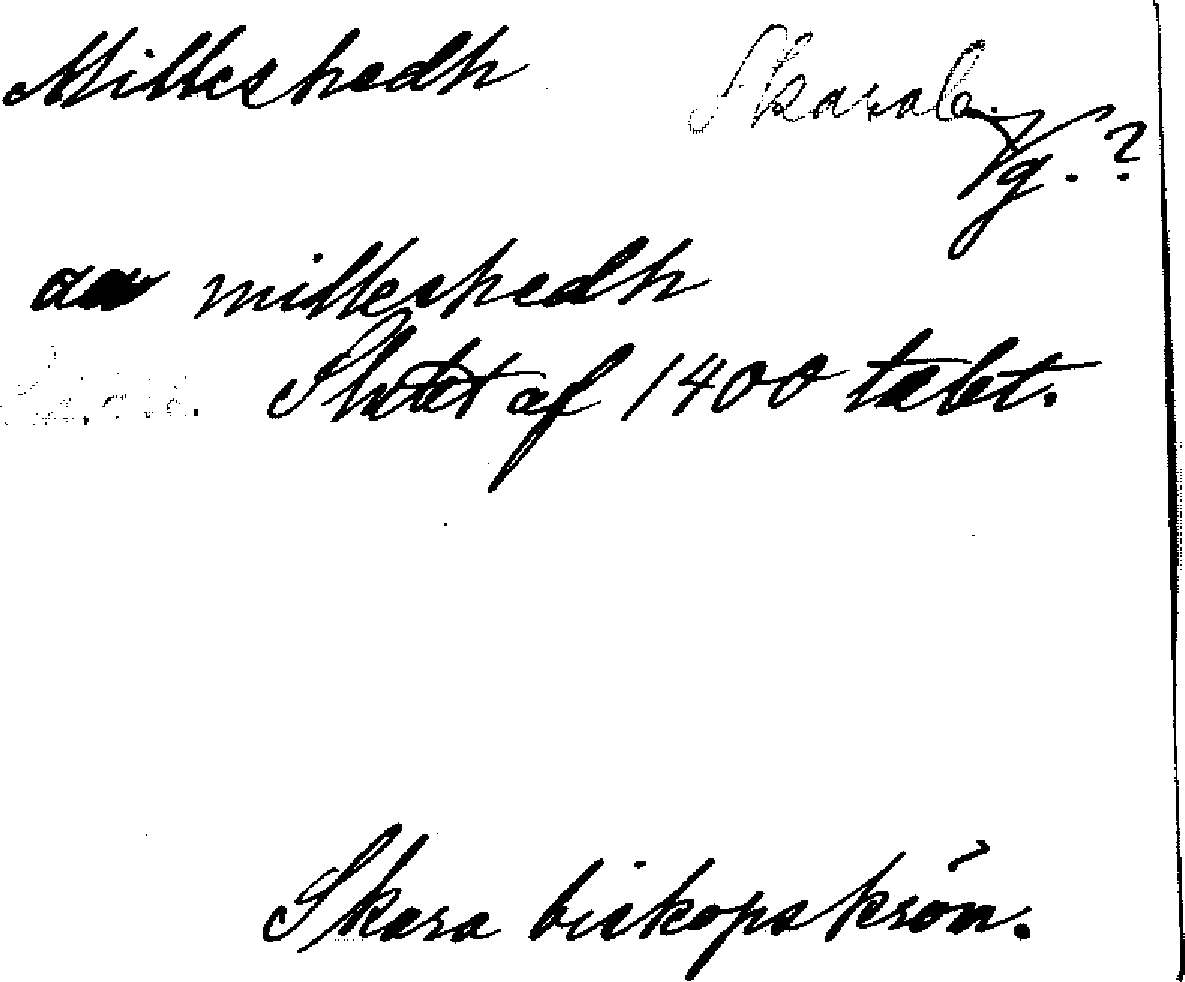 Milleshedh Skarab.
Vg. ?
aa milleshedh
Slutet af 1400 talet.
Skara biskopskrön.